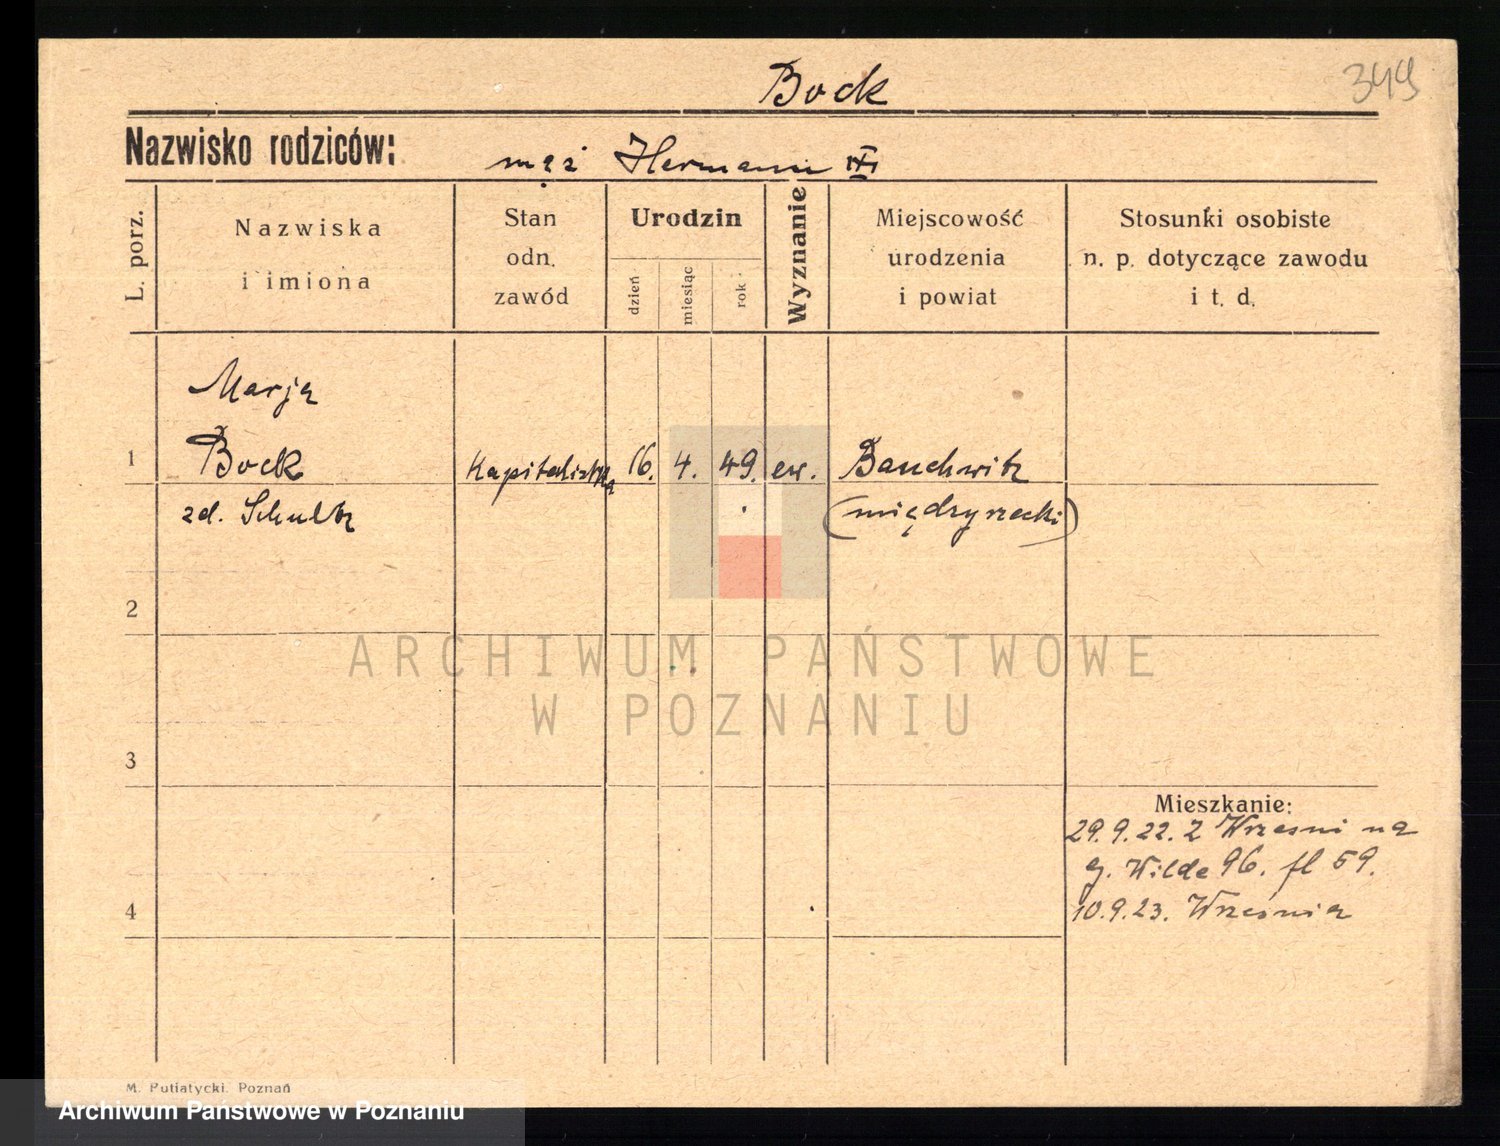 Bock
349
Nazwisko rodziców:
mąż Hermann
L. porz.
Nazwiska
i imiona
Stan
odn.
zawód
Urodzin
dzień
miesiąc
rok
Wyznanie
Miejscowość
urodzenia
i powiat
Stosunki osobiste
n. p. dotyczące zawodu
i t. d.
Marja
1 Bock Kapitalistka 16. 4. 49. ew. Bauchwitz
zd. Schultz (międzyrzecki)
2
ARCHIWUM PAŃSTWOWE
W POZNANIU
3
Mieszkanie:
29.9.22. Z Wrześni na
g. Wilde 96. fl 59.
4 10.9.23. Września
M. Putiatycki. Poznań
Archiwum Państwowe w Poznaniu